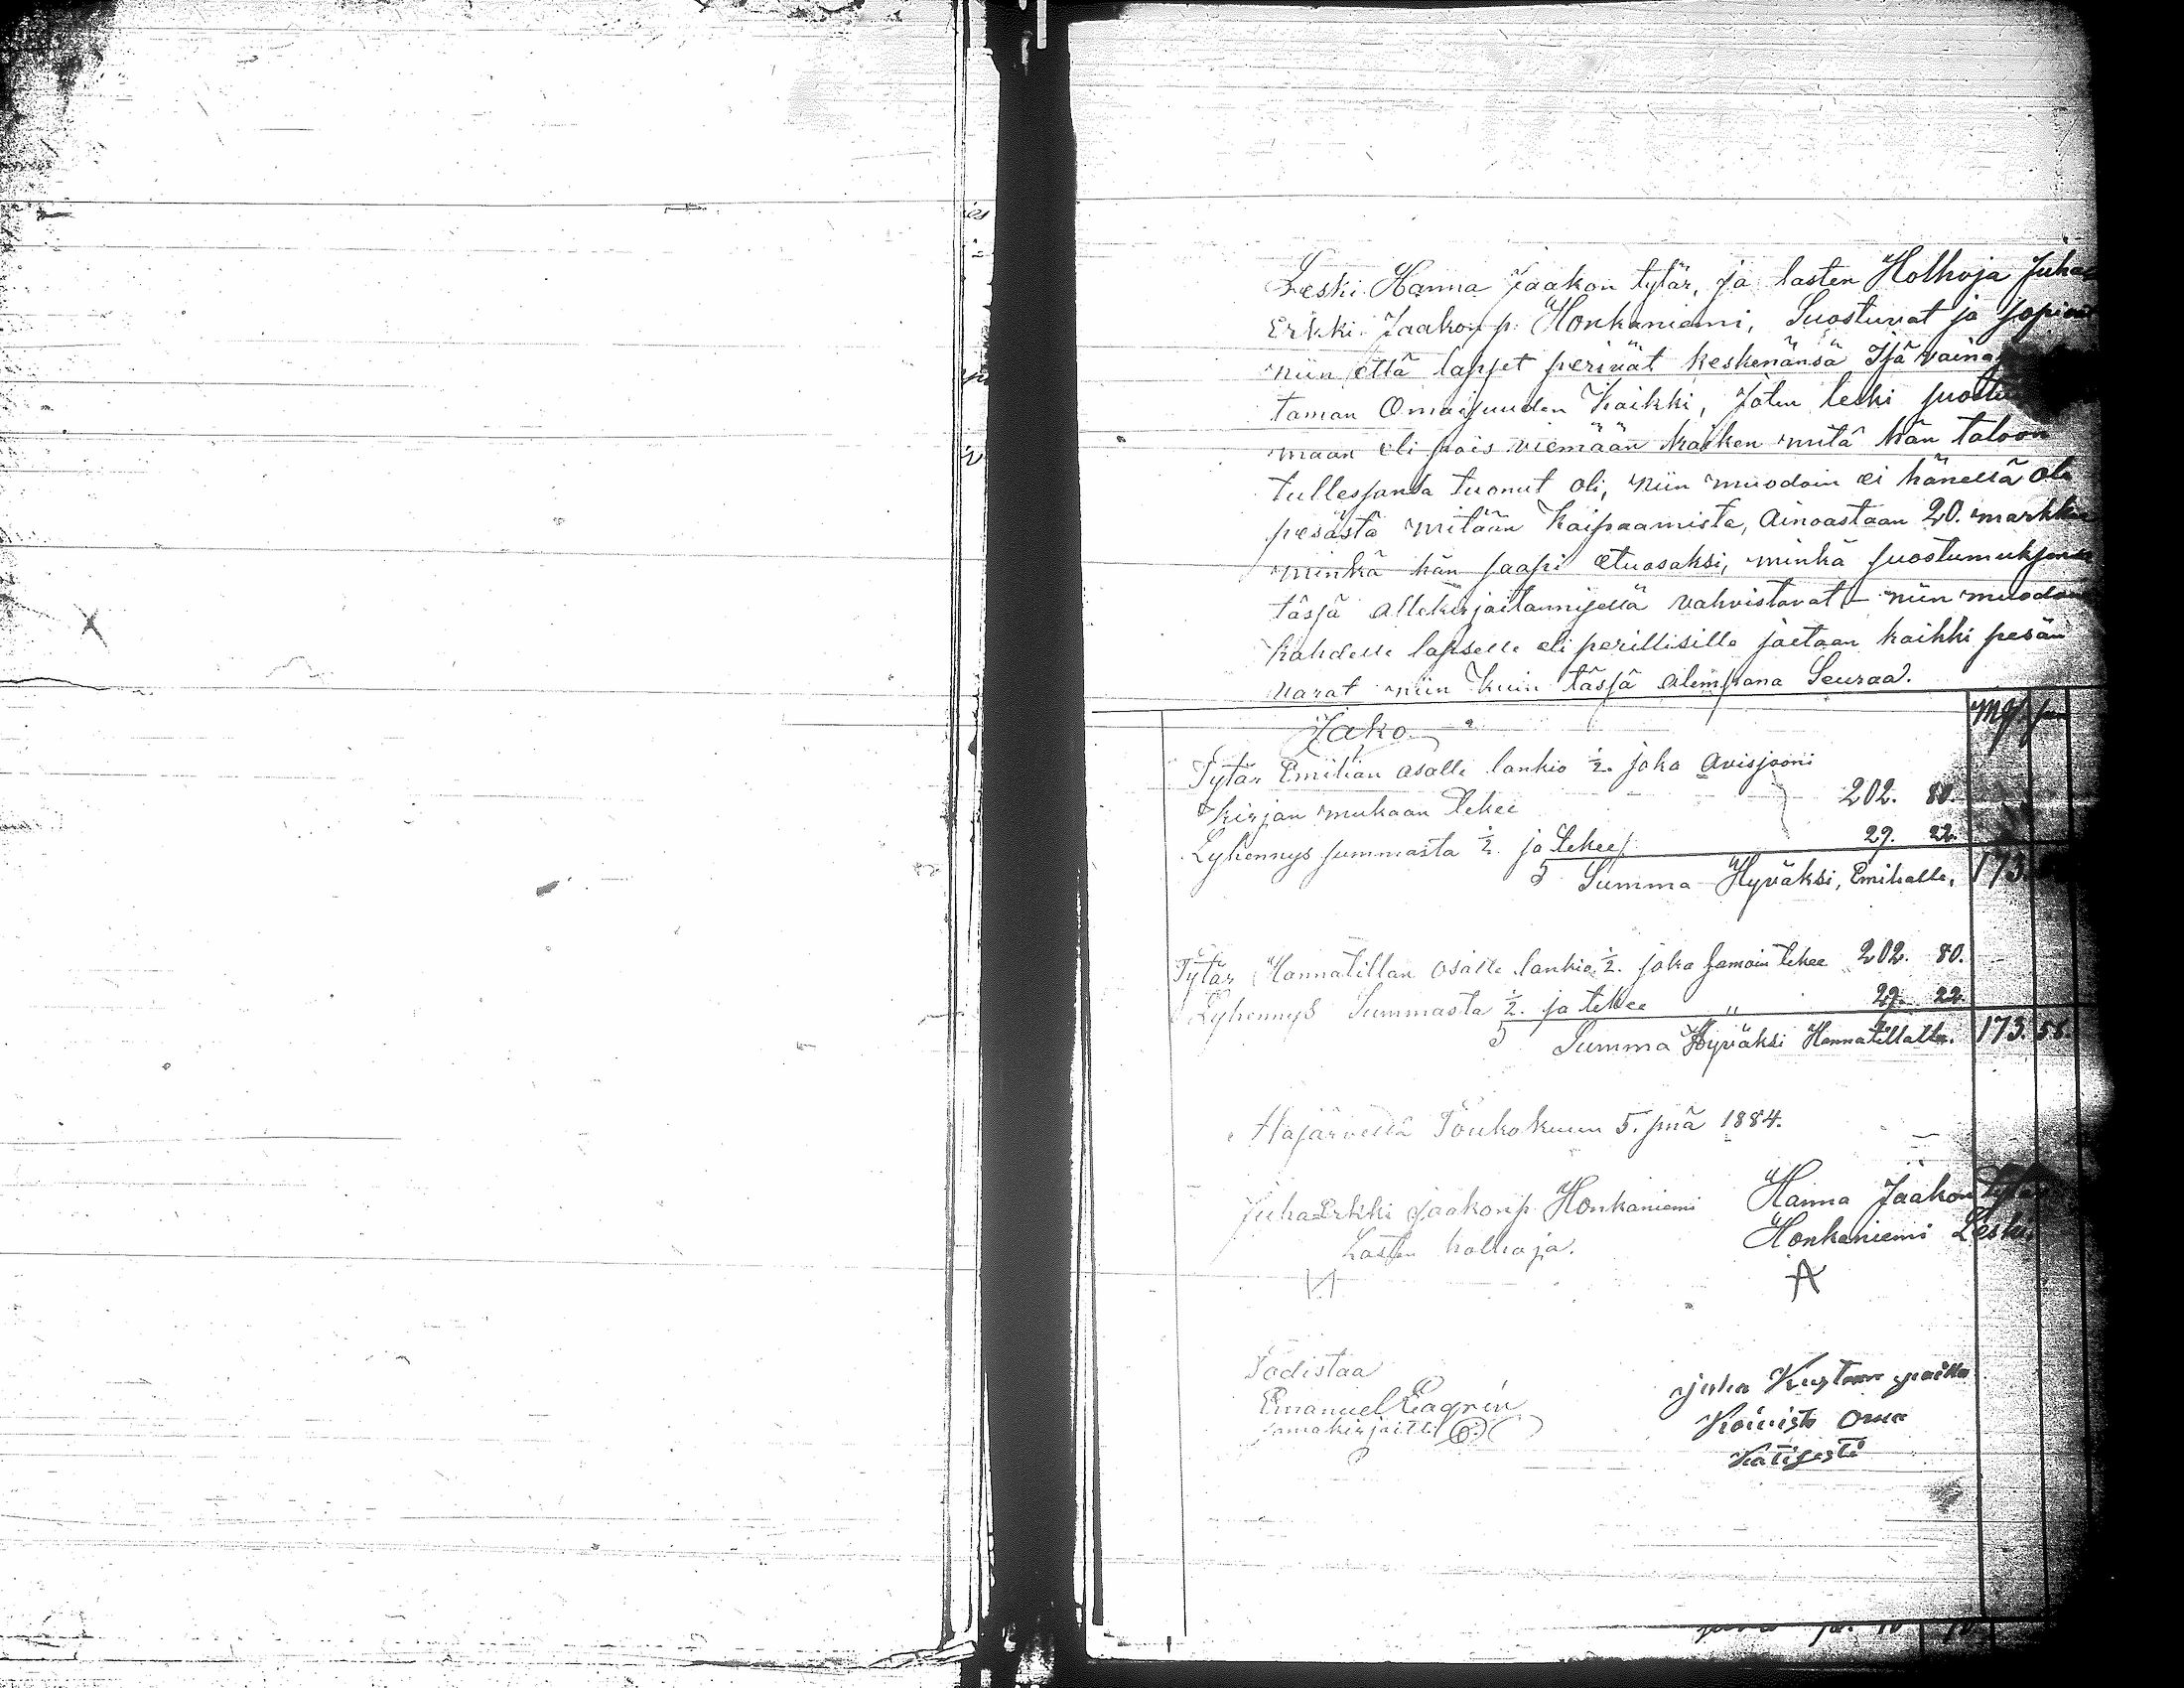 Leski Hanna Jaakon tytär, ja lasten Holhoja Juha
Erkki Jaakon p. Honkaniemi, Suostuvat ja sopivat
niin että lapset perivät keskenänsä Isä vaina
taman Omaisuuden Kaikki, Joten leski suostu
maan eli pois viemään kaiken mitä hän taloon
tullessansa tuonut oli, niin muodoin ei hänellä ole
pesästä mitään Kaipaamista, ainoastaan 20. markkaa
minkä hän saapi etuosaksi, minkä suostumuksensa
tässä allekirjoitannisella vahvistavat – niin muodoin
kahdelle lapselle eli perillisille jaetaan kaikki pesän
varat niin kuin tässä alempana Seuraa.
Jako Mk
Tytär Emilian osalle lankio ½. joka avisjooni
kirjan mukaan tekee 202. 80.
Lyhennys summasta ½. ja tekee 29. 22.
Summa Hyväksi, Emilialle, 173
Tytär Hannatillan osalle lankio ½. joka samoin tekee 202. 80.
Lyhennys Summasta ½. ja tekee " 29. 22.
Summa Hyväksi Hannatillalle. 173. 58.
Alajärvellä Toukokuun 5. pnä 1884.
Juha Erkki Jaakonp. Honkaniemi Hanna Jaakon Tytär
Lasten holhoja. Honkaniemi Leski.
Todistaa
Emanuel Lagrin Juha Kustaan poika
samakirjoitti Koivisto Oma
Kätisesti